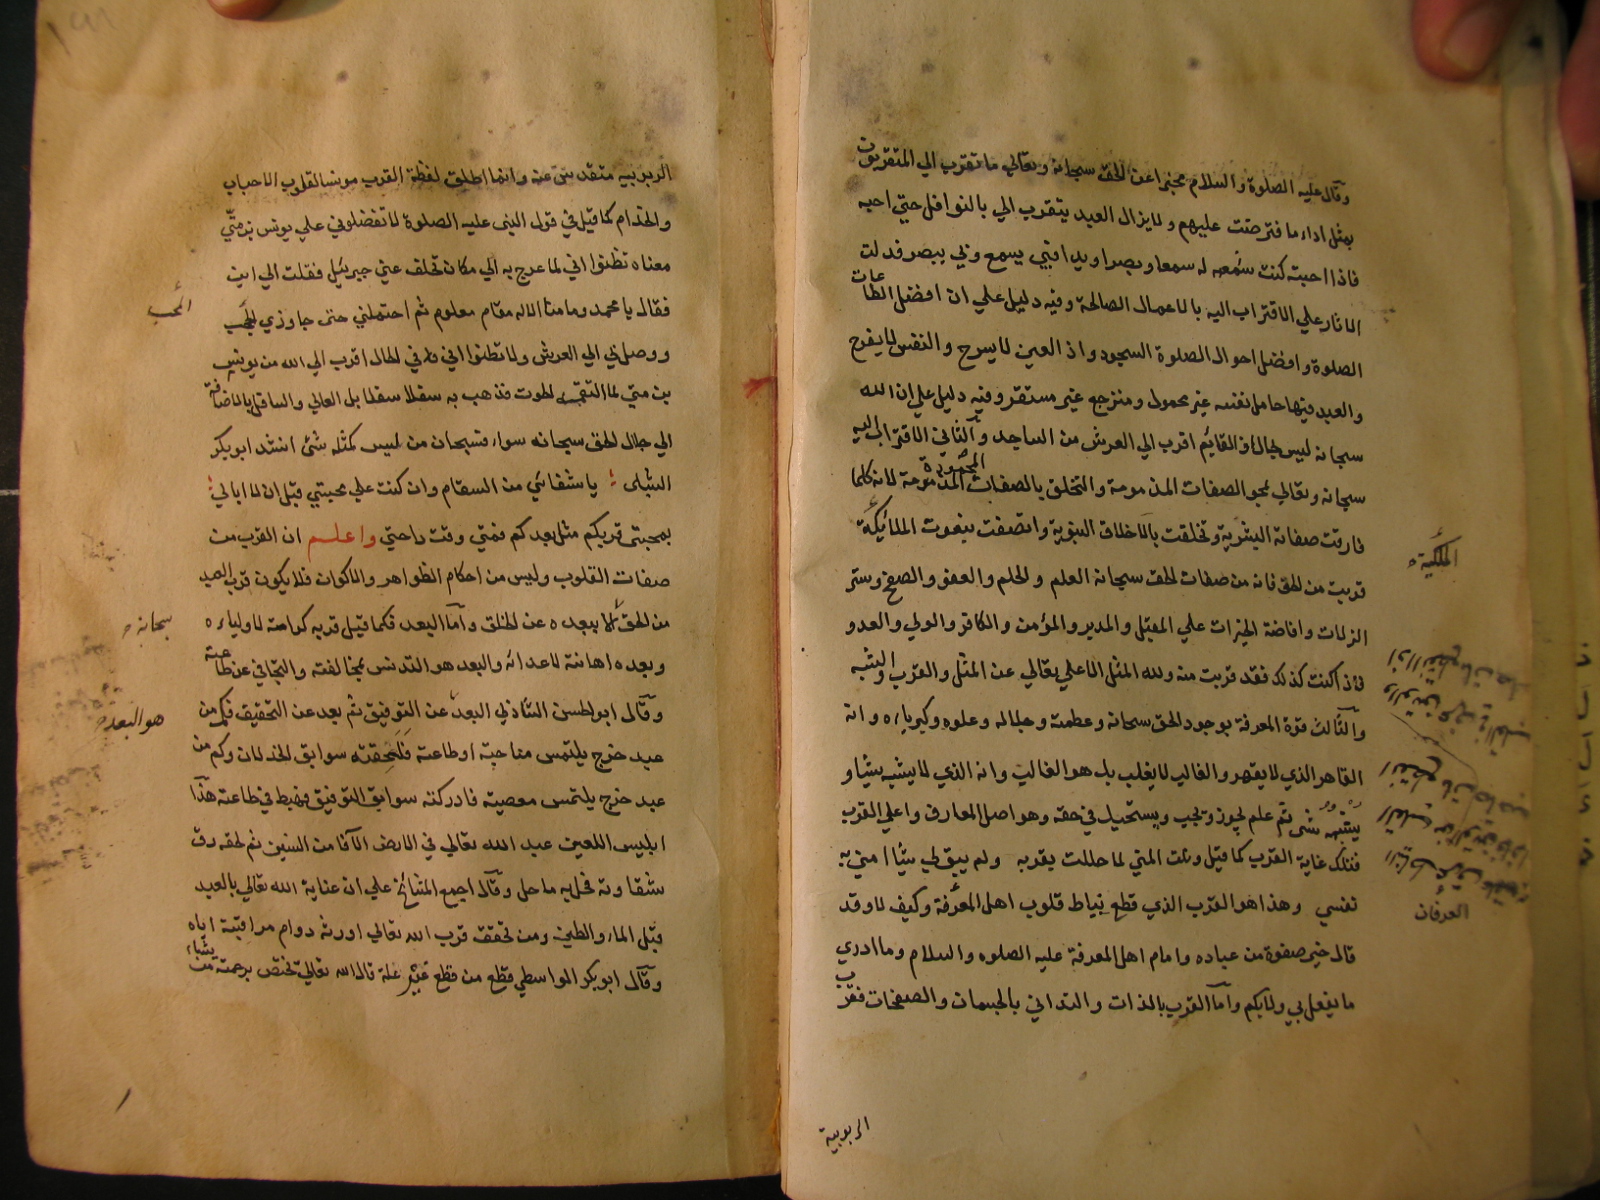 وقال عليه الصلوة والسلام مخبرا عن الحق سبحانه وتعالي ما تقرب الي المتقربون
بمثل اداء ما افترضت عليهم ولا يزال العبد يتقرب الي بالنوافل حتي احبه
فاذا احببته كنت سمعه له سمعا وبصرا ويدا فبي يسمع وبي يبصر فدلت
الاثار علي الاقتراب اليه بالاعمال الصالحة وفيه دليل علي ان افضل الطاعات
الصلوة وافضل احوال الصلوة السجود واذ العين لا يسرح والنفس لا يفرح
والعبد فيها حامل نفسه غير محمول ومنزعج غير مستقر وفيه دليل علي ان الله
سبحانه ليس القائم اقرب الي العرش من الساجد والثاني الاقتراب اليه
سبحانه وتعالي بمحو الصفات المذمومة والتخلق بالصفات المذمومة لانه كلما
المحمودة
فارقت صفاته البشرية وتخلقت بالاخلاق النبوية واتصفت بنعوت الملائكة
الملكية
قربت من الحق فانه من صفات الحق سبحانه العلم والحلم والعفو والصفح وستر
الزلات وافاضة الخيرات علي المقبل والمدبر والمؤمن والكافر والولي والعدو
فاذا كنت كذلك فقد قربت منه ولله المثل الاعلي تعالي عن المثل والقرب والشبه
والثالث قوة المعرفة بوجود الحق سبحانه وعظمته وجلاله وعلوه وكبرياءه وانه
القاهر الذي لا يقهر والغالب لا يغلب بل هو الغالب وانه الذي لا يشبه شيئا و
يشبهه شئ ثم علم يجوز ويجب ويستحيل في حقه وهو اصل المعارف واعلي القرب
فتلك غاية القرب كما قيل ونلت المني لما حللت بقربه ولم يبق لي شيئا امني به
نفسي وهذا هو القرب الذي قطع نياط قلوب اهل المعرفة وكيف لا وقد
العرفان
قال خير صفوة من عباده وامام اهل المعرفة عليه الصلوه والسلام وما ادري
ما يفعل بي ولا بكم واما القرب بالذات والتداني بالجسمات والصفحات فقرب
الربوبية
الربوبيه متقدس عنه وانما اطلق لفظة القرب مونسا لقلوب الاحباب
والخدام كما قيل في قول النبي عليه الصلوة لا تفضلوني علي يونس بن متي
معناه تظنوا اني لما عرج به الي مكان تخلف عني جبريل فقلت الي اين
فقال يا محمد وما منا الا له مقام معلوم ثم احتملني حتي جاوزي الحجب
الحجب
ووصل بي الي العرش ولا تظنوا اني في الحال اقرب الي الله من يونس
بن متي لما التقمه الحوت فذهب به سفلا سفلا بل العالي والسافل بالاضافة
الي جلال الحق سبحانه سواء فسبحان من ليس كمثله شئ انشد ابو بكر
الشبلي يا شفائي من السقام وان كنت علي محبتي قبل ان لا ابالي
بمحبتي قربكم مثل بعدكم فمتي وقت راحتي واعلم ان القرب من
صفات القلوب وليس من احكام الظواهر والاكوان فلا يكون قرب العبد
من الحق الا ببعده عن الخلق واما البعد فكما قيل قربه كرامته لاولياءه
سبحانه
وبعده اهانته لاعدائه والبعد هو التدنس بمخالفته والتجافي عن طاعته
وقال ابو الحسن الشاذلي البعد عن التوفيق ثم بعد عن التحقيق فكم من
هو البعد
عبد خرج يلتمس مناجته او طاعته فلحقته سوابق الخذلان وكم من
عبد خرج يلتمس معصيته فادركته سوابق التوفيق فهبط في طاعته هذا
ابليس اللعين عبد الله تعالي في الارض الآفا من السنين ثم لحقه درك
شقاوته فحل به ما حل وقال اجمع المشائخ علي ان عناية الله تعالي بالعبد
قبل الماء والطين ومن تحقق قرب الله تعالي اورثه دوام مراقبته اياه
وقال ابو بكر الواسطي قطع من قطع غير علة قال الله تعالي يختص برحمته من يشاء